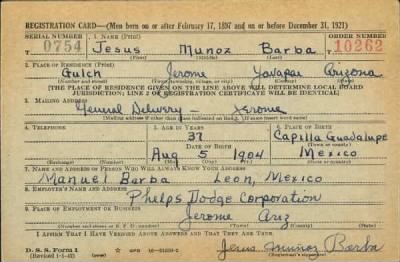 REGISTRATION CARD—(Men born on or after February 17, 1897 and on or before December 31, 1921)
SERIAL NUMBER 1. NAME (Print) ORDER NUMBER
0754 Jesus Munoz Barba 10262
(First) (Middle) (Last)
2. PLACE OF RESIDENCE (Print)
Gulch Jerome Yavapai Arizona
(Number and street) (Town, township, village, or city) (County) (State)
[THE PLACE OF RESIDENCE GIVEN ON THE LINE ABOVE WILL DETERMINE LOCAL BOARD
JURISDICTION; LINE 2 OF REGISTRATION CERTIFICATE WILL BE IDENTICAL]
3. MAILING ADDRESS
General Delivery — Jerome
[Mailing address if other than place indicated on line 2. If same insert word same]
4. TELEPHONE 5. AGE IN YEARS 6. PLACE OF BIRTH
37 Capilla Guadalupe
DATE OF BIRTH (Town or county)
Aug 5 1904 Mexico
(Exchange) (Number) (Mo.) (Day) (Yr.) (State or country)
7. NAME AND ADDRESS OF PERSON WHO WILL ALWAYS KNOW YOUR ADDRESS
Manuel Barba Leon, Mexico
8. EMPLOYER'S NAME AND ADDRESS
Phelps Dodge Corporation
9. PLACE OF EMPLOYMENT OR BUSINESS
Jerome Ariz
(Number and street or R. F. D. number) (Town) (County) (State)
I AFFIRM THAT I HAVE VERIFIED ABOVE ANSWERS AND THAT THEY ARE TRUE.
D. S. S. Form 1 Jesus Muñoz Barba
(Revised 1-1-42) (over) (Registrant's signature)